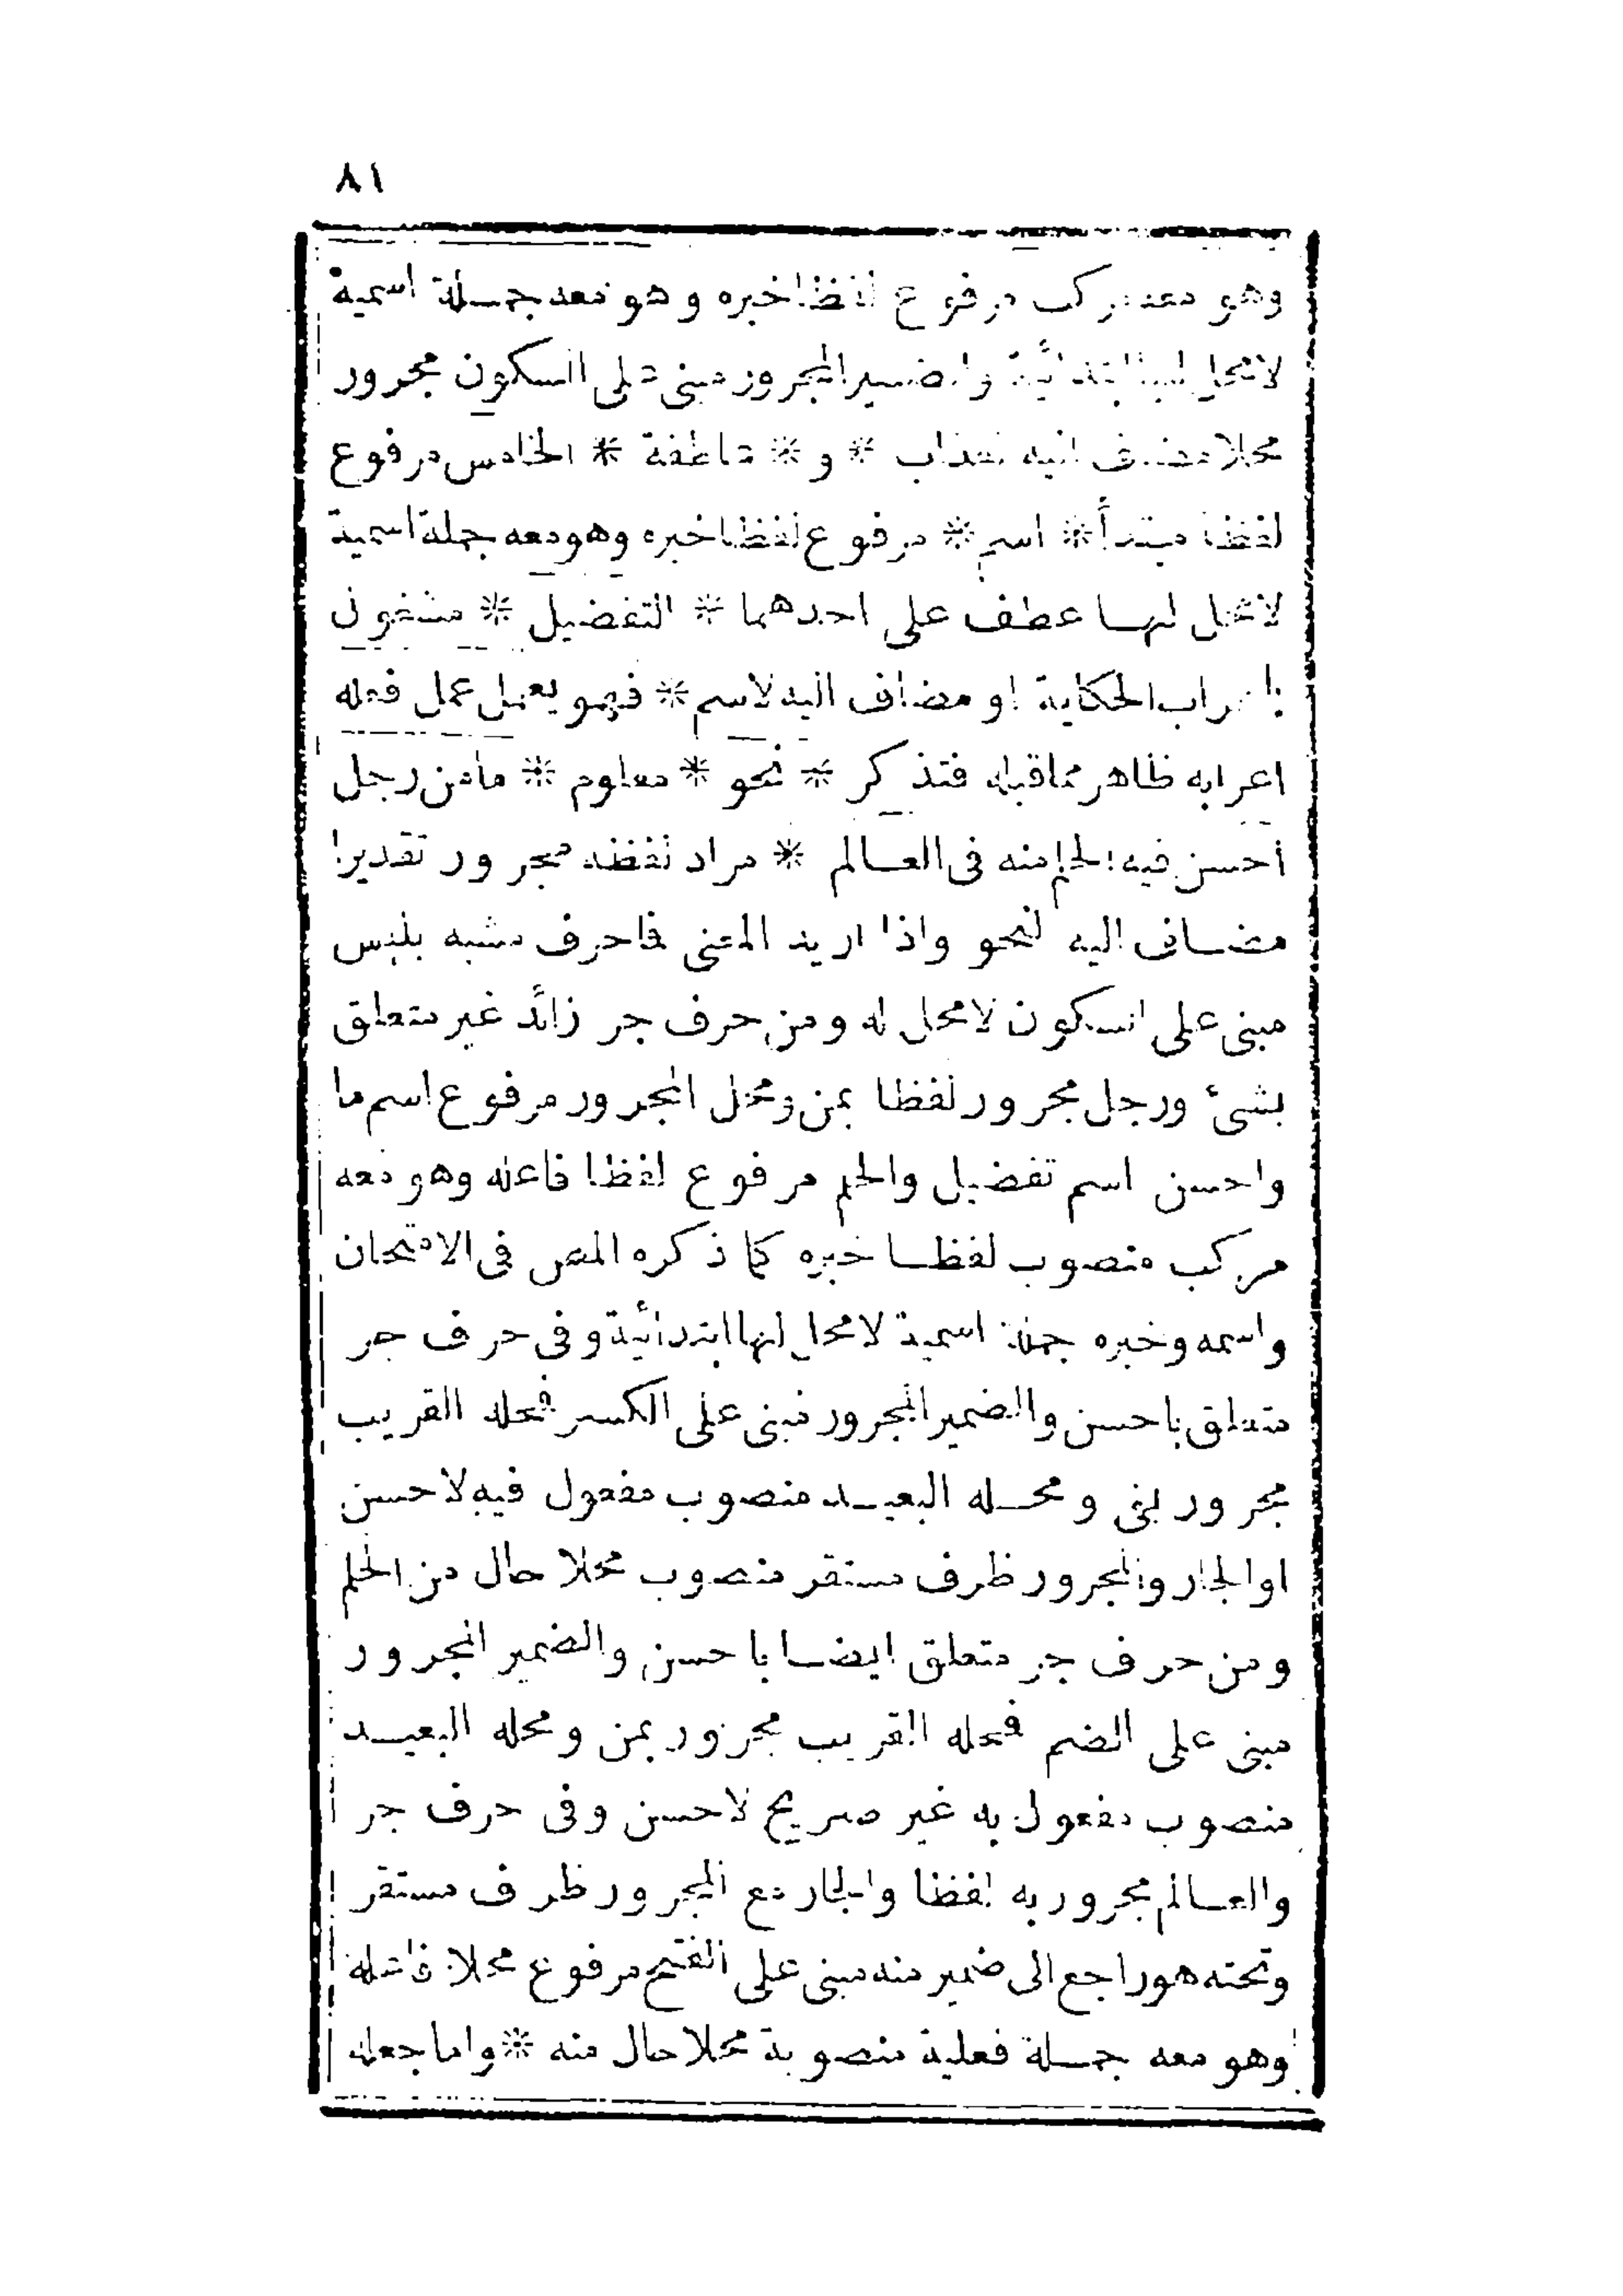 ٨١
وهو معه مركب مرفوع لفظا خبره وهو معه جملة اسمية
لا محل لها ابتدائية والضمير المجرور مبنى على السكون مجرور
محلا مضاف اليه لعذاب * و * عاطفة * الخامس مرفوع
لفظا مبتدأ * اسم * مرفوع لفظا خبره وهو معه جملة اسمية
لا محل لها عطف على احدهما * التفضيل * مشغول
باعراب الحكاية او مضاف اليه لاسم * فهو يعمل عمل فعله
اعرابه ظاهر مما قبله فتذكر * نحو * معلوم * ما من رجل
احسن فيه الحلم منه فى العالم * مراد لفظه مجرور تقديرا
مضاف اليه لنحو واذا اريد المعنى فما حرف مشبه بليس
مبنى على السكون لا محل له ومن حرف جر زائد غير متعلق
بشئ ورجل مجرور لفظا بمن ومحل المجرور مرفوع اسم ما
واحسن اسم تفضيل والحلم مرفوع لفظا فاعله وهو معه
مركب منصوب لفظا خبره كما ذكره المص فى الامتحان
واسمه وخبره جملة اسمية لا محل لها ابتدائية وفى حرف جر
متعلق باحسن والضمير المجرور مبنى على الكسر فمحله القريب
مجرور بفى ومحله البعيد منصوب مفعول فيه لاحسن
او الجار والمجرور ظرف مستقر منصوب محلا حال من الحلم
ومن حرف جر متعلق ايضا باحسن والضمير المجرور
مبنى على الضم فمحله القريب مجرور بمن ومحله البعيد
منصوب مفعول به غير صريح لاحسن وفى حرف جر
والعالم مجرور به لفظا والجار مع المجرور ظرف مستقر
وتحته هو راجع الى ضمير منه مبنى على الفتح مرفوع محلا فاعله
وهو معه جملة فعلية منصوبة محلا حال منه * واما جعله